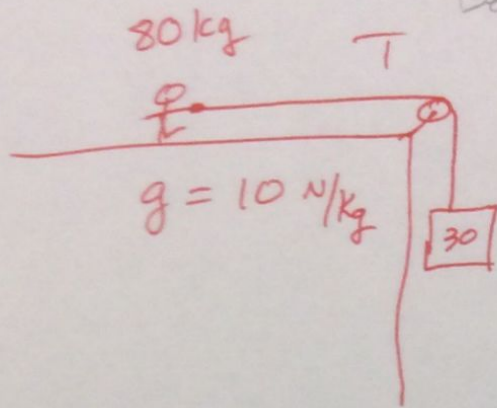 80 kg
T
g = 10 N/kg
30